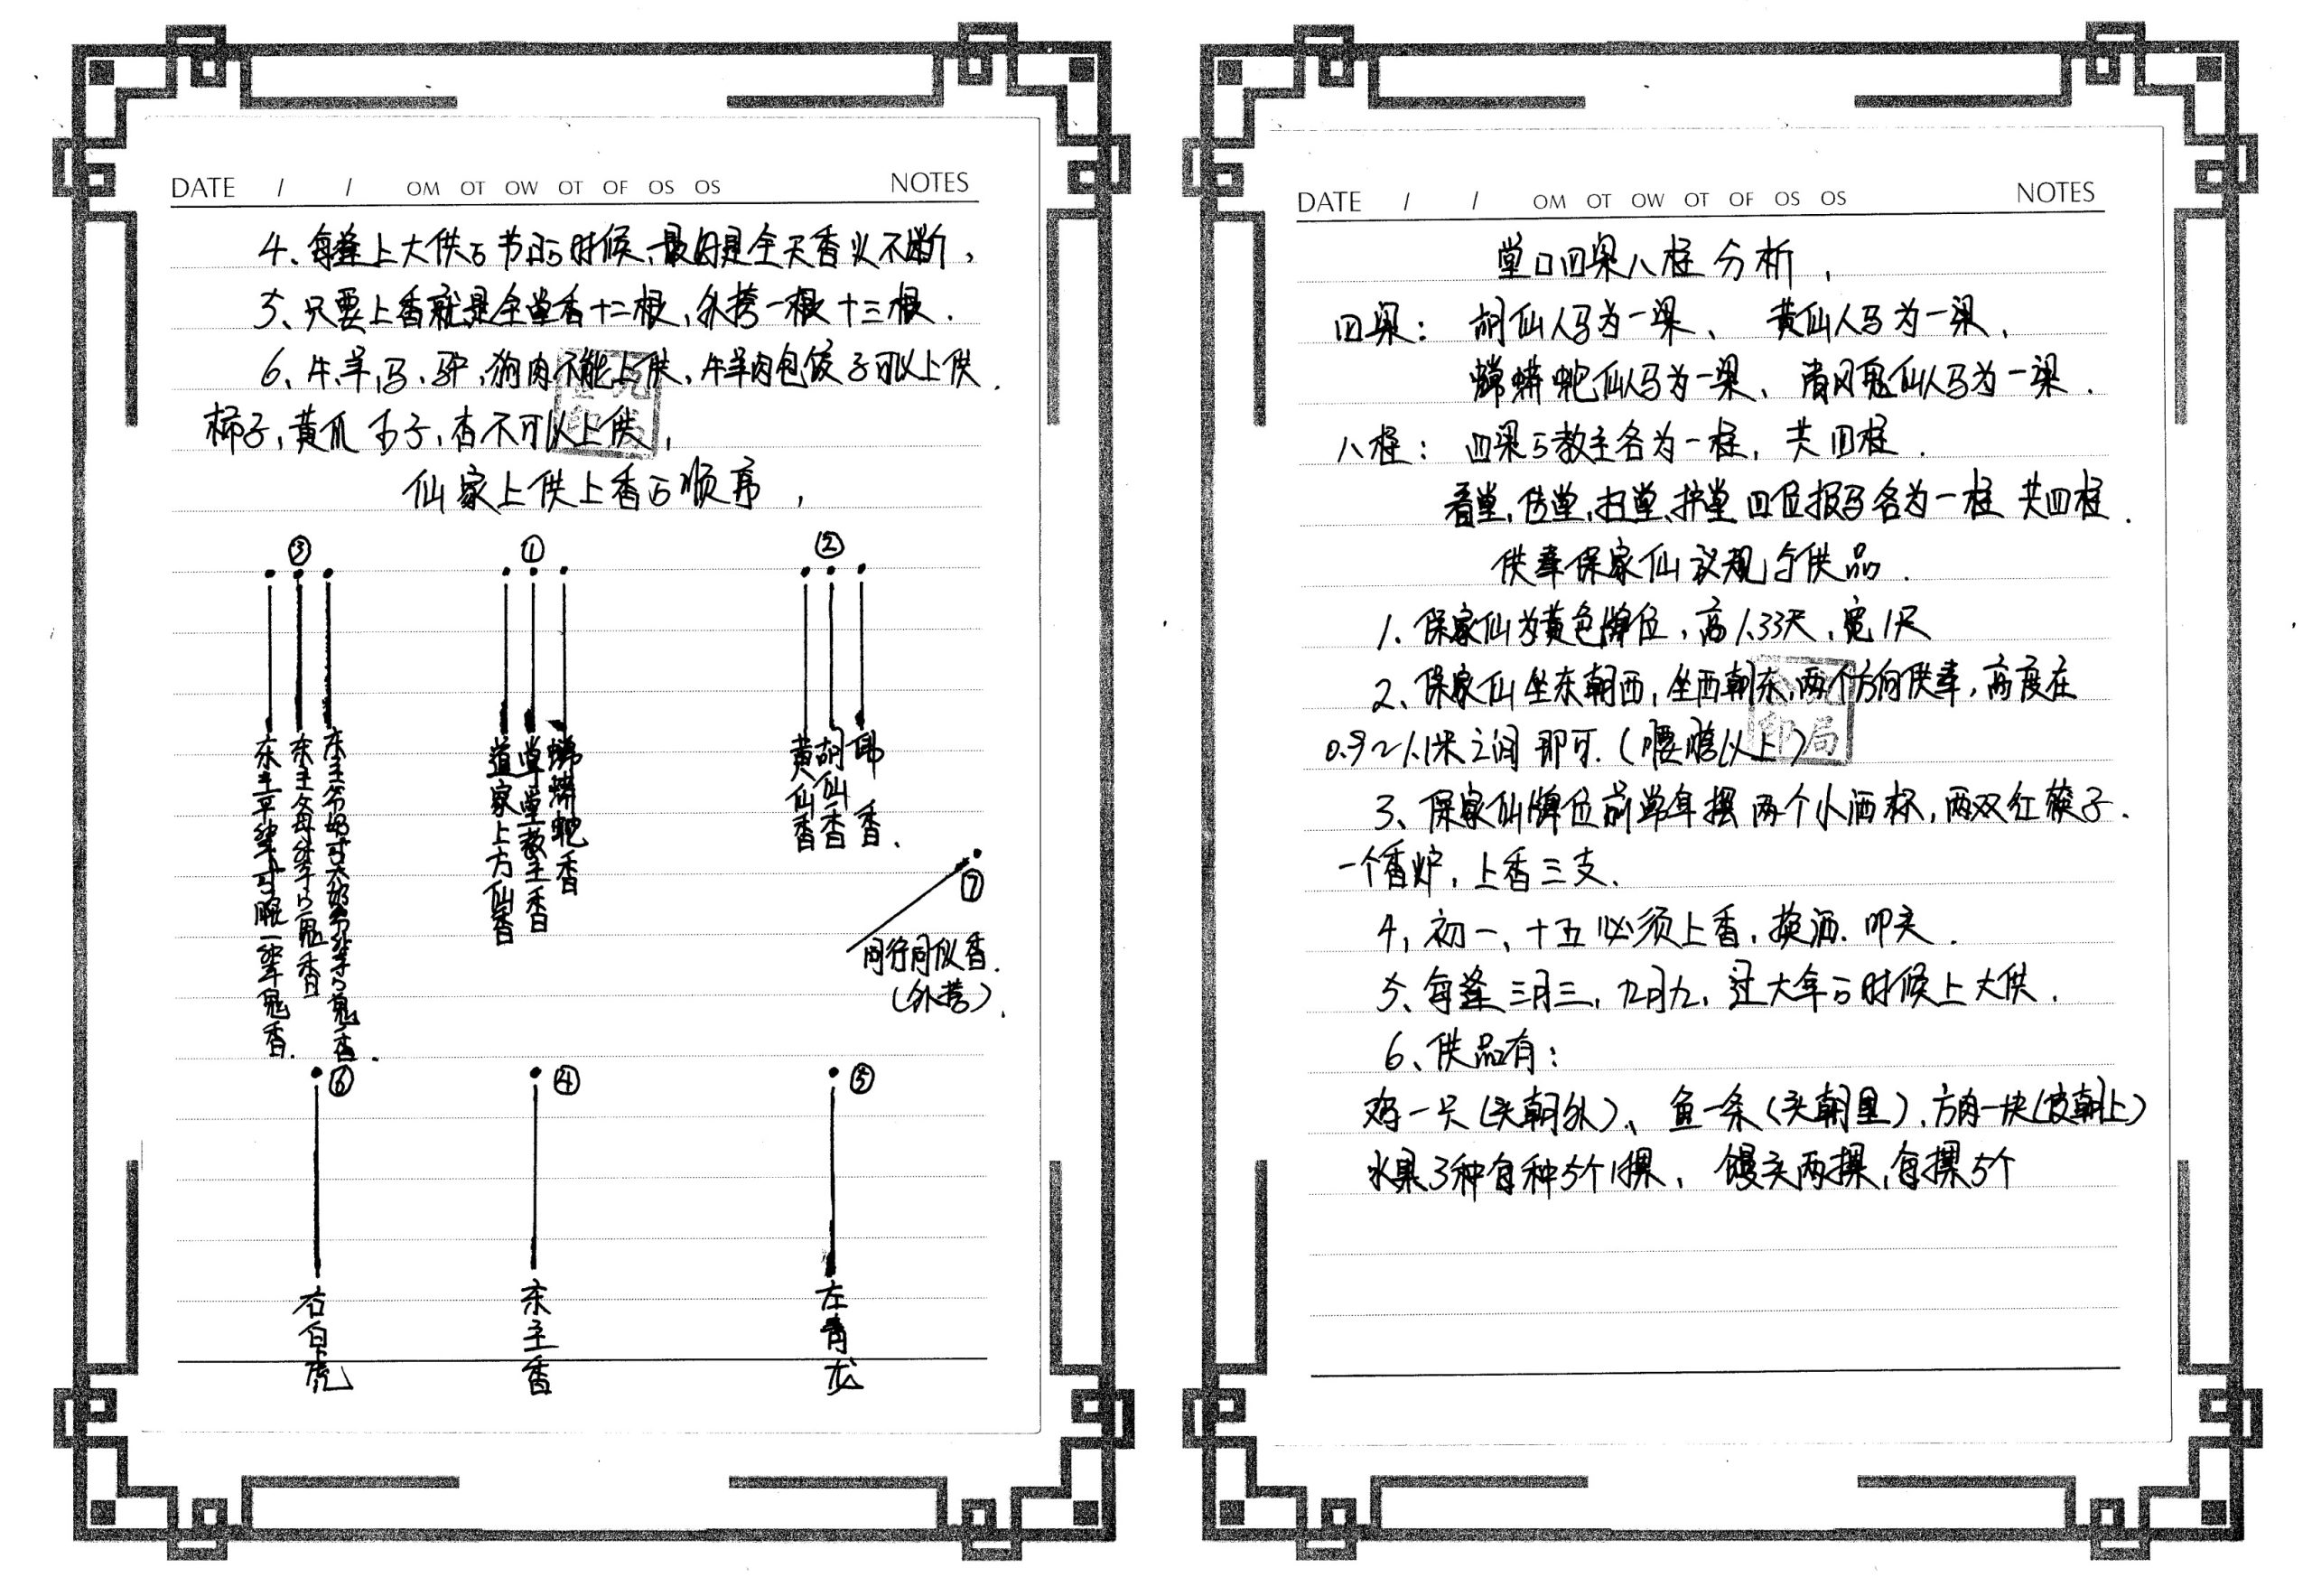 DATE / / OM OT OW OT OF OS OS NOTES
4、每逢上大供的节日的时候、最好是全天香火不断，
5、只要上香就是全堂香十二根，外搭一根十三根．
6、牛、羊、马、驴、狗肉不能上供、牛羊肉包饺子可以上供．
柿子，黄瓜 李子，杏不可以上供，
仙家上供上香的顺序，
③ ① ②
东主平辈对眼一辈鬼香．
东主父母辈的鬼香
东主爷奶对太奶爷辈的鬼香．
道家上方仙香
堂堂教主香
蟒蟒蛇香
黄仙香
胡仙香
佛香．
⑦
同行同似香．
（外搭）．
⑥ ④ ⑤
右白虎
东主香
左青龙
DATE / / OM OT OW OT OF OS OS NOTES
堂口四梁八柱分析，
四梁： 胡仙人马为一梁、 黄仙人马为一梁、
蟒蛇仙人马为一梁、清风鬼仙人马为一梁．
八柱： 四梁的教主各为一柱，共四柱．
看堂，传堂，扫堂、护堂四位报马各为一柱 共四柱．
供奉保家仙议规与供品．
1、保家仙为黄色牌位，高1.33尺、宽1尺
2、保家仙坐东朝西，坐西朝东、两个方向供奉，高度在
0.9~1.1米之间即可．（腰脐以上）
3、保家仙牌位前常年摆两个小酒杯，两双红筷子．
一个香炉，上香三支．
4，初一、十五必须上香，换酒．叩头．
5、每逢三月三，九月九，过大年的时候上大供．
6、供品有：
鸡一只（头朝外）、鱼一条（头朝里）、方肉一块（皮朝上）
水果3种每种5个1摞、馒头两摞，每摞5个